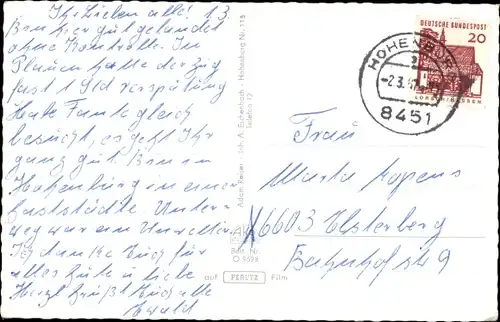 Ihr Lieben alle! 1.3.
Bin hier gut gelandet
ohne Kontrolle. In
Plauen hatte der Zug
fast 1 Std Verspätung
Habe Tante gleich
besucht, es geht Ihr
ganz gut. Bin in
Hohenburg in einer
Gaststädte Unter-
weg war ein
Ich danke Euch für
alles Gute u. liebe
Herzl. Grüßt Euch alle
Ewald
Adam Reiser Inh. A. Eschenbach - Hohenburg Nr. 115
Telefon 77
Best. Nr.
O 9698
auf PERUTZ Film
DEUTSCHE BUNDESPOST
20
LORSCH/HESSEN
HOHENBURG
-2.3.67
8451
Frau
X6603 Elsterberg
Bahnhofstr 9